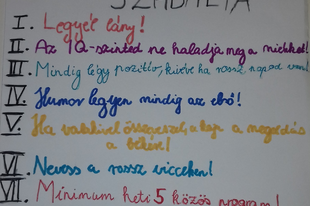 SZABÁLYZA
I. Legyél lány!
II. Az IQ-szinted ne haladja meg a miénket!
III. Mindig légy pozitív, kivéve ha rossz napod van!
IV. Humor legyen mindig az első!
V. Ha valakivel összeveszel, a kaja a megoldás
a békére!
VI. Nevess a rossz vicceken!
VII. Minimum heti 5 közös program!